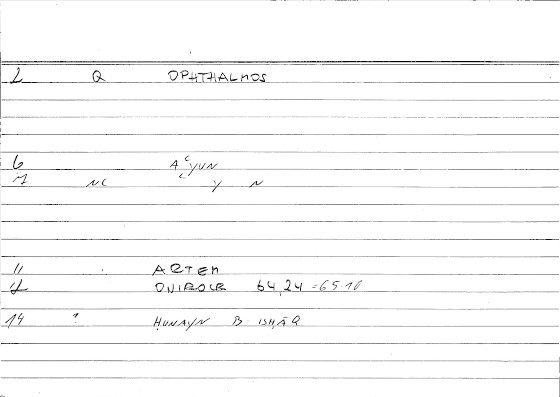 2 Q OPHTHALMOS
6 AʿYUN
7 NC ʿ Y N
11 ARTEM
12 ONIROCR 64,24 = 65.10
14 ? ḤUNAYN B ISḤĀQ